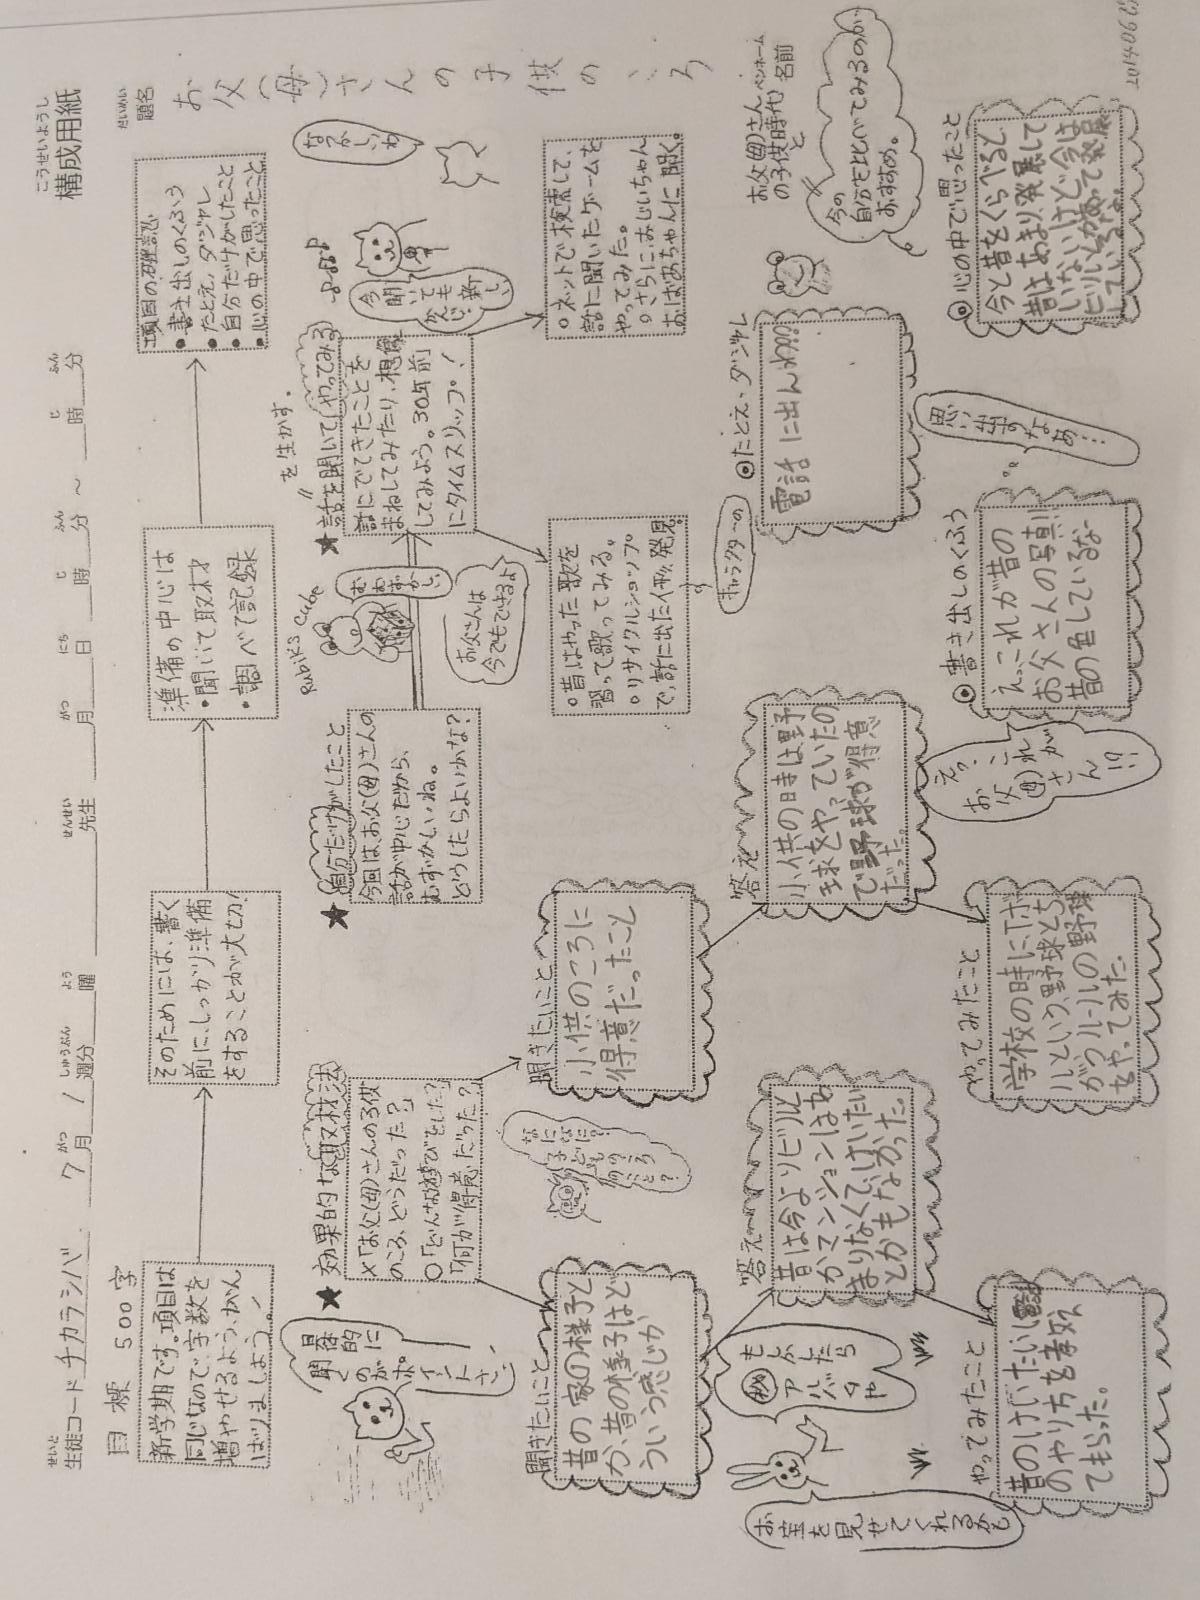 こうせいようし
構成用紙
せいと
生徒コード チカラシバ 7月 / 週分 曜 先生 月 日 時 分 ～ 時 分
がつ しゅうぶん よう せんせい がつ にち じ ふん じ ふん
目標 500字
だいめい
題名
お父(母)さんの子供のころ
新学期です。項目は
同じなので、字数を
増やせるよう、がん
ばりましょう!
そのためには、書く
前に、しっかり準備
をすることが大切!
準備の中心は
・聞いて取材
・調べて記録
項目の確認
●書き出しのくふう
●たとえ、ダジャレ
●自分だけがしたこと
●心の中で思ったこと
具体的に
聞くの
がポ
イント
さ!
★効果的な取材法
×「お父(母)さんの子供
のころ、どうだった?」
○「どんな遊びをした?」
「何が得意だった?」
なになに?
子ども
のころ
のこと?
★自分だけがしたこと
今回は、お父(母)さんの
話が中心だから、
むずかしいね。
どうしたらよいかな?
Rubik's Cube
むずかしい
お父さんは
今でもできるよ
★"話を聞いてやってみる
を生かす。
話にでてきたことを
まねしてみたり、想像
してみよう。30年前
にタイムスリップ!
今聞いても
新しい
かんじ
なつかしいね
○昔はやった歌を
習って歌ってみる。
○リサイクルショップ
で、話に出た人形発見。
キャラクターの
○ネットで検索して、
話に聞いたゲームを
やってみた。
○さらに、おじいちゃん
おばあちゃんに聞く。
聞きたいこと
昔の家の様子と
か、昔の様子はど
ういう感じか
聞きたいこと
小供のころに
得意だったこと
㊙
もしかしたら
アルバムや
お宝を見せてくれるかも
答え
昔は今よりビルと
かマンションはあ
まりなくて、けいたい
とかもなかった。
答え
小供の日時は、野
球をやっていたの
で野球が得意
だった。
やってみたこと
昔のけいたい
のやり方を
てもらった。
やってみたこと
学校の時に、Tボー
ルという、野球とち
がうルールの野球
をやってみた。
えっ、これが
お父(母)さん!?
◎書き出しのくふう
えっこれが昔の
お父さんの写真!
昔の色しているな
思い出すなぁ…
◎たとえ、ダジャレ
電話に出んわ
◎心の中で思ったこと
今と昔をくらべると、
昔はあまり発展して
いないけど、今は
ビルとかがあって発展
している
お父(母)さん
の子供時代と
ペンネーム
名前
今の
自分を比べてみるのが
おすすめ。